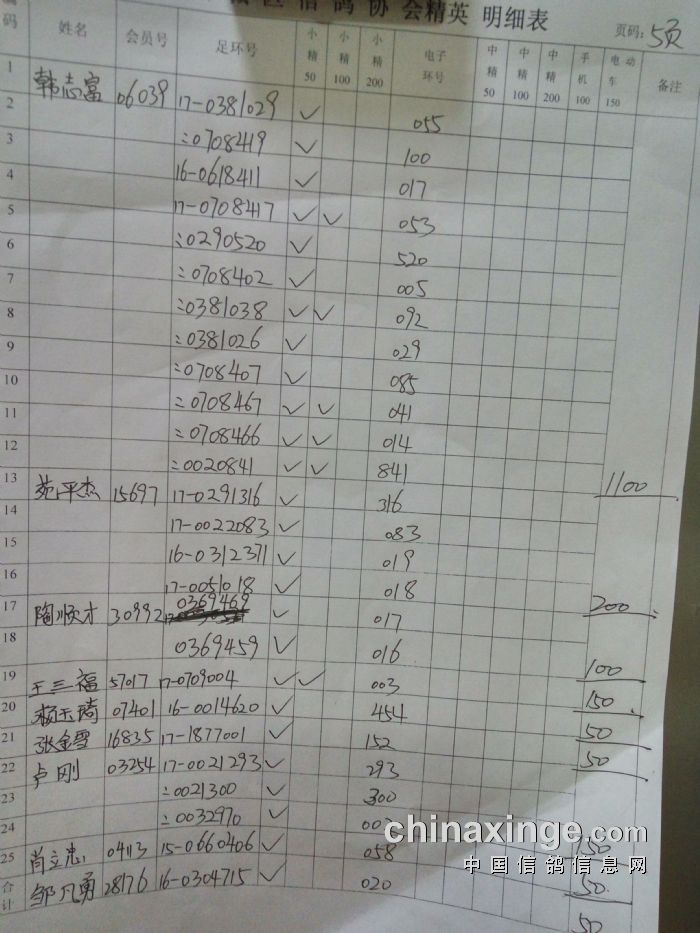 区 信 鸽 协 会精英 明细表
页码：5页
编码 姓名 会员号 足环号 小精50 小精100 小精200 电子环号 中精50 中精100 中精200 手机100 电动车150 备注
1 韩志富 06039 17-0381029 ✓ 055
2 ::0708419 ✓ 100
3 16-0618411 ✓ 017
4 17-0708417 ✓ ✓ 053
5 ::0290520 ✓ 520
6 ::0708402 ✓ 005
7 ::0381038 ✓ ✓ 092
8 ::0381026 ✓ 029
9 ::0708407 ✓ 085
10 ::0708467 ✓ ✓ 041
11 ::0708466 ✓ ✓ 014
12 ::0020841 ✓ ✓ 841 1100
13 苑平杰 15697 17-0291316 ✓ 316
14 17-0022083 ✓ 083
15 16-0312371 ✓ 019
16 17-0051018 ✓ 018 200
17 陶顺才 30992 0369469 ✓ 017
18 0369459 ✓ 016 100
19 王三福 57017 17-0709004 ✓ ✓ 003 150
20 杨玉琦 07401 16-0014620 ✓ 454 50
21 张金雪 16835 17-1877001 ✓ 152 50
22 卢刚 03254 17-0021293 ✓ 293
23 ::0021300 ✓ 300
24 ::0032970 ✓ 150
25 肖立忠 04113 15-0660406 ✓ 058 50
合计 邹凡勇 28176 16-0304715 ✓ 020 50
chinaxinge.com
中国信鸽信息网